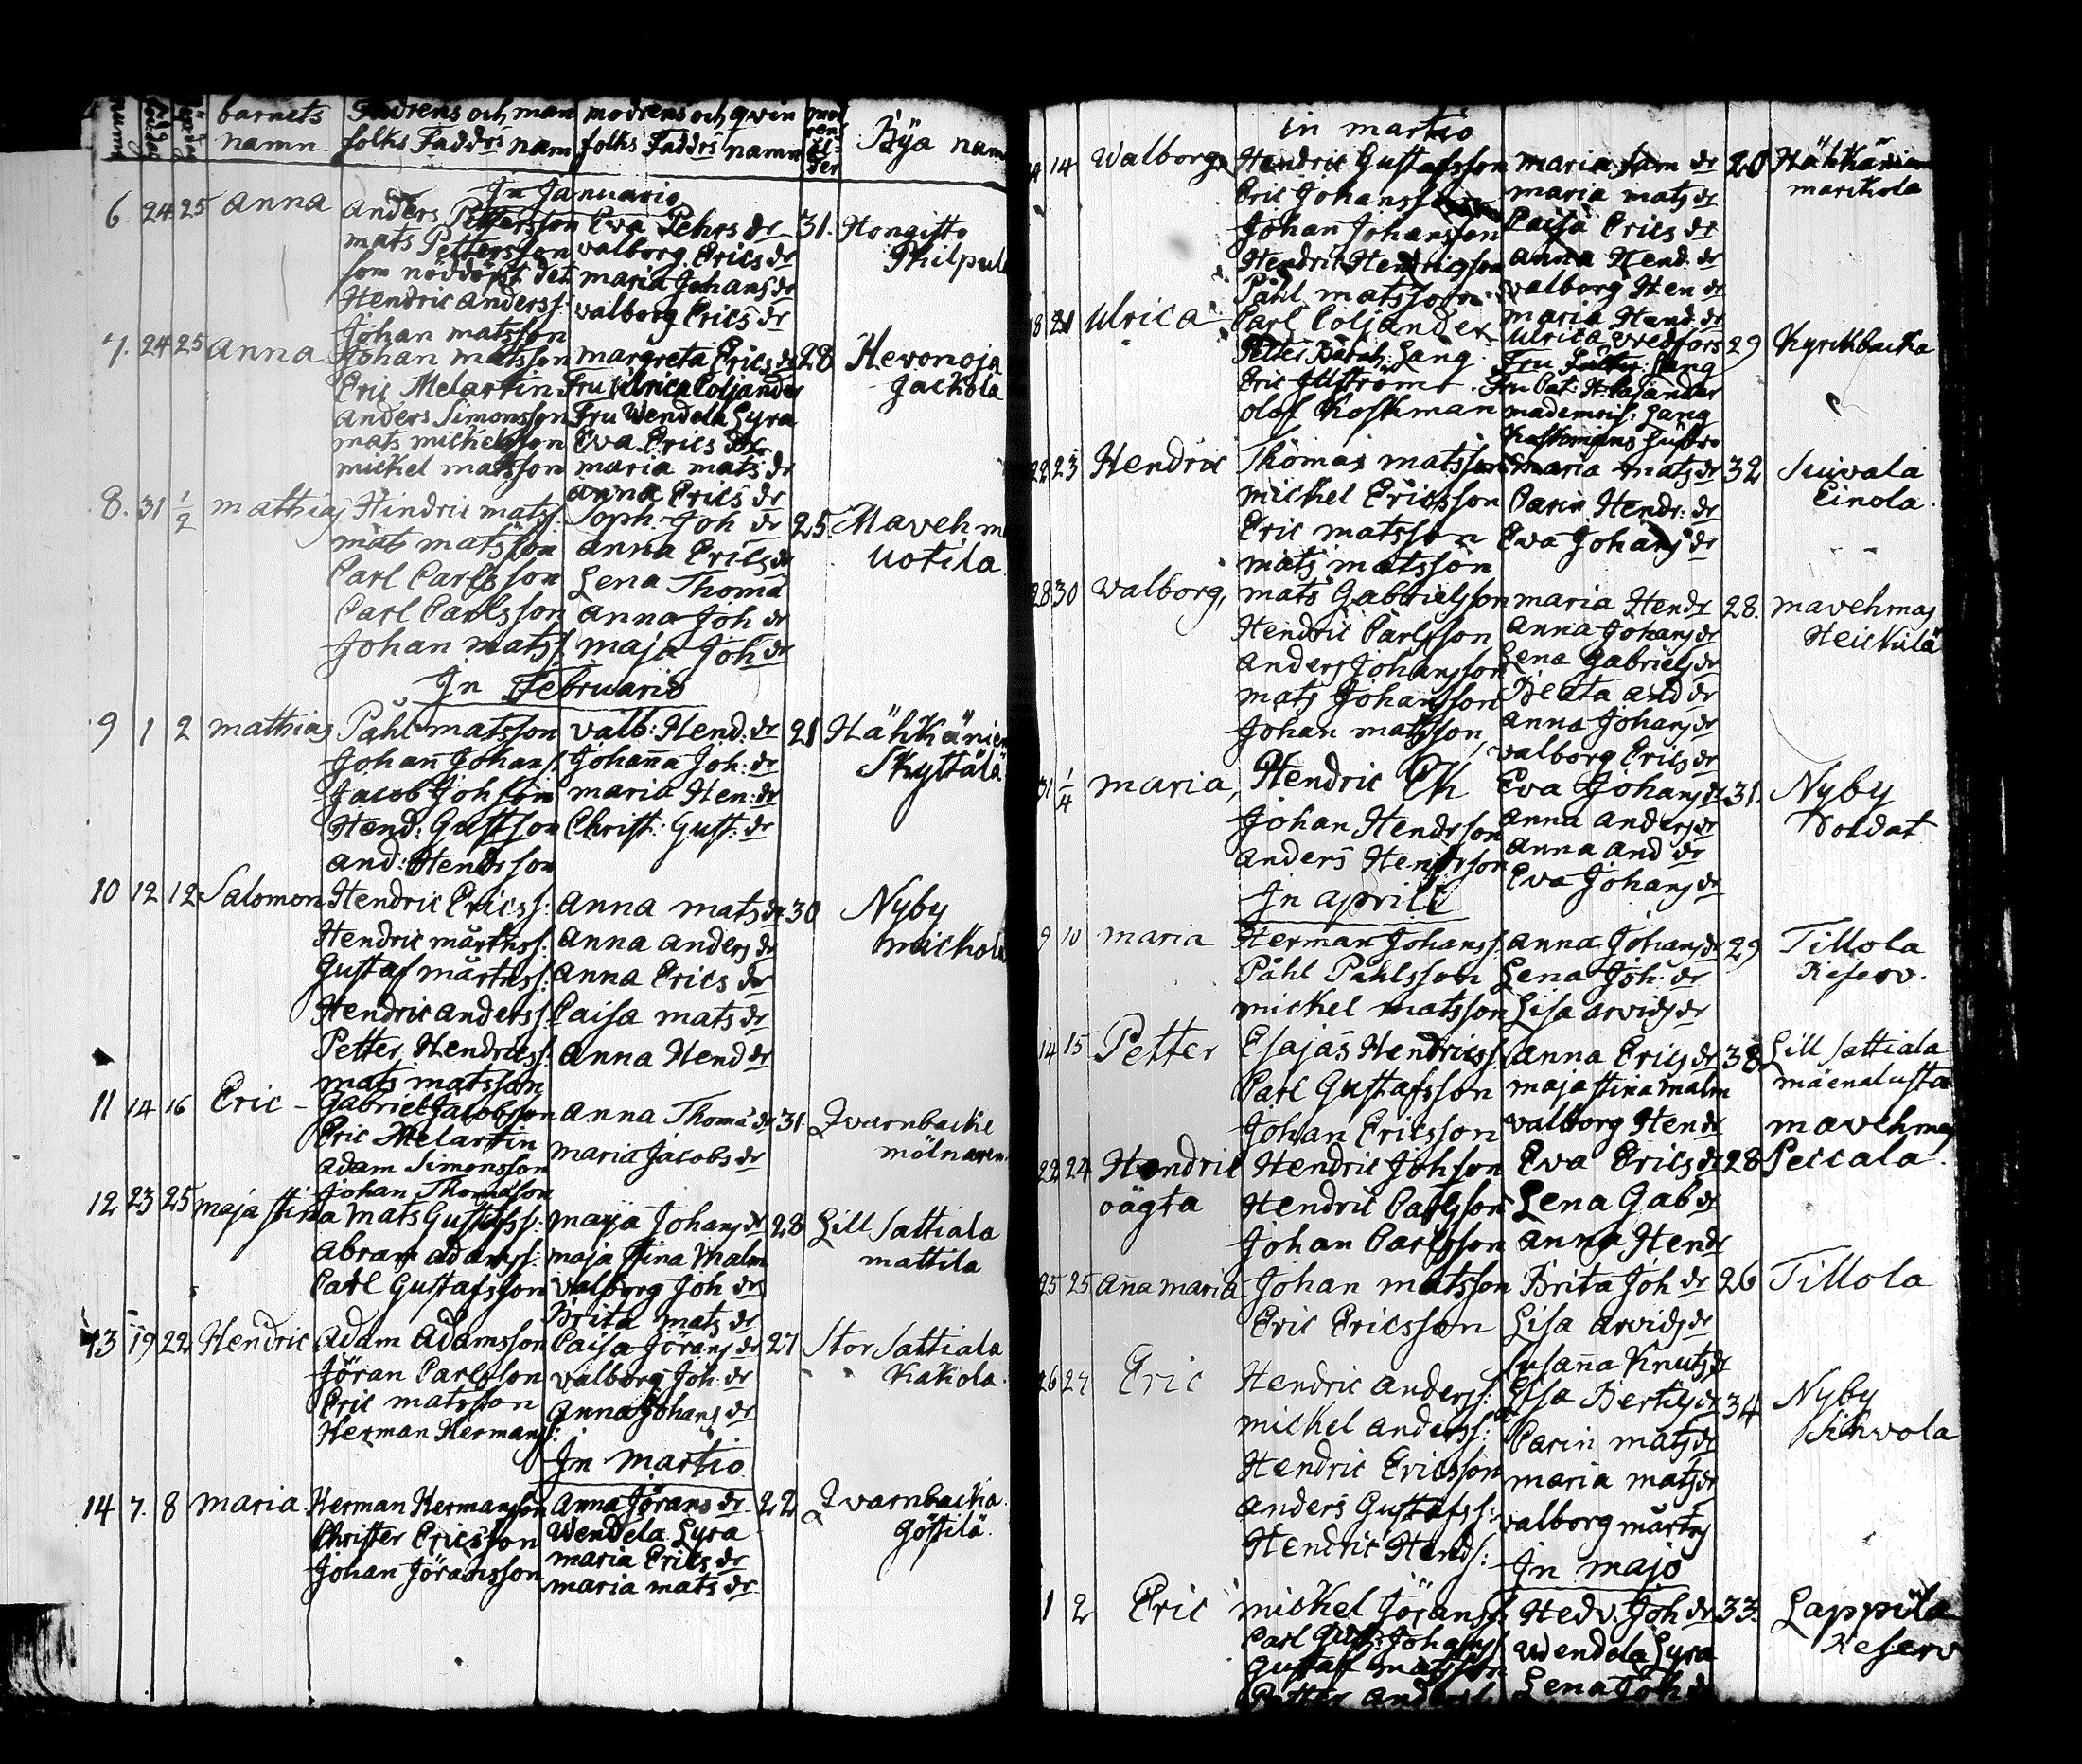 barnets Fadrens och man modrens och qwin mod
namn. folks Faddrs namn folks Faddrs namn Bÿa namn
In Januario
6. 24 25 Anna Anders Pettersson Ewa Pehrs dr 31. Hongisto
mats Pettersson valborg Erics dr Philpula
som nöddöpt det maria Johans dr
Hendric anderss: valborg Erics dr
Johan matsson
7. 24 25 Anna Johan matsson margreta Erics dr 28 Hevonoja
Eric Melartin Fru Ulrica Coljander Jackola
anders Simonsson Fru Wendela Lyra
mats michelsson Eva Erics dr
michel matsson maria mats dr
anna Erics dr
8. 31 1/2 mathias Hindric mats: Soph. Joh dr 25 Mavehm
mats matsson anna Erics dr Uotila
Carl Carlsson Lena Thoma
Carl Carlsson anna Joh dr
Johan mats: maja Joh dr
In Februario
9 1 2 mathias Påhl matsson valb: Hend. dr 21 Hähkänien
Johan Johans: Johanna Joh: dr Skyttälä
Jacob Johsson maria Hen: dr
Hend: Gustsson Christ: Gust: dr
and: Hendrsson
10 12 12 Salomon Hendric Erics: anna mats dr 30 Nyby
Hendric mårtnss: anna anders dr mickola
Gustaf mårtnss: anna Erics dr
Hendric anderss: Caisa mats dr
Petter Hendricss: anna Hend dr
mats matsson
11 14 16 Eric – Gabriel Jacobsson anna Thomæ dr 31. Qvarnbacke
Eric Melartin maria Jacobs dr mölnaren
adam Simonsson
Johan Thomasson
12 23 25 maja stina Mats Gustafss: maja Johans dr 28 Lill Sattiala
abram adamss: maja stina malm mattila
Carl Gustafsson valborg Joh dr
Brita mats dr
13 19 22 Hendric Adam Adamsson Caisa Jörans dr 27 Stor Sattiala
Jöran Carlsson valborg Joh: dr Kakola
Eric matsson anna Johans dr
Herman Hermans:
In martio
14 7. 8 maria Herman Hermansson Anna Jörans dr 22 Qvarnbacka
Christer Ericsson Wendela Lyra Göstilä.
Johan Jöransson maria Erics dr
maria mats dr
in martio
14 Walborg Hendric Gustafsson maria Sam dr 20 Hähkänien
Eric Johansson maria mats dr marckola
Johan Johansson Caisa Erics dr
Hendric Hendricsson anna Hend: dr
Påhl matsson valborg Hen dr
maria Hend. dr
18 21 Ulrica Carl Coljander Ulrica Wrefors 29 Kyrckbacka
Petter Lang Fru Lang
Eric Illström Fru Cat: H: Cajander
olof Koskman mademois: Lang
22 23 Hendric Thomas matsson maria mats dr 32 Suivala
michel Ericsson Carin Hendr: dr Einola.
Eric matsson Ewa Johans dr
mats matsson
28 30 walborg, mats Gabrielsson maria Hen dr 28. mavehmas
Hendric Carlsson anna Johans dr Heickilä
anders Johansson Lena Gabriels dr
mats Johansson Beata and dr
Johan matsson anna Johans dr
valborg Erics dr
31 1/4 maria, Hendric Ek Eva Johans dr 31. Nyby
Johan Hendrsson anna anders dr Soldat
anders Hendrsson anna and dr
Eva Johans dr
In aprill
9 10 maria Herman Johanss: anna Johans dr 29 Tillola
Påhl Påhlsson Lena Joh: dr Reserv.
michel matsson Lisa arvids dr
14 15 Petter Esajas Hendricss: anna Erics dr 38 Lill Sattiala
Carl Gustafsson maja stina malm mäenalusta
Johan Ericsson valborg Hen dr mavehmas
22 24 Hendric Hendric Johsson Eva Erics dr 28 Peccala.
oägta Hendric Carlsson Lena Gab dr
Johan Carlsson anna Hend
25 25 Aña maria Johan matsson Brita Joh dr 26 Tillola
Eric Ericsson Lisa arvids dr
Susaña Knuts dr
26 27 Eric Hendric anderss: Lisa Bertils dr 34 Nyby
michel anderss: Carin mats dr
Hendric Ericsson maria mats dr
anders Gustafss: valborg mårtns
Hendric Hends:
In majo
1 2 Eric michel Jöranss: Hedv. Joh dr 33. Lappila
Carl Gust: Johanss: Wendela Lyra Reserv
Gustaf matsson Lena Joh dr
Petter anderss: